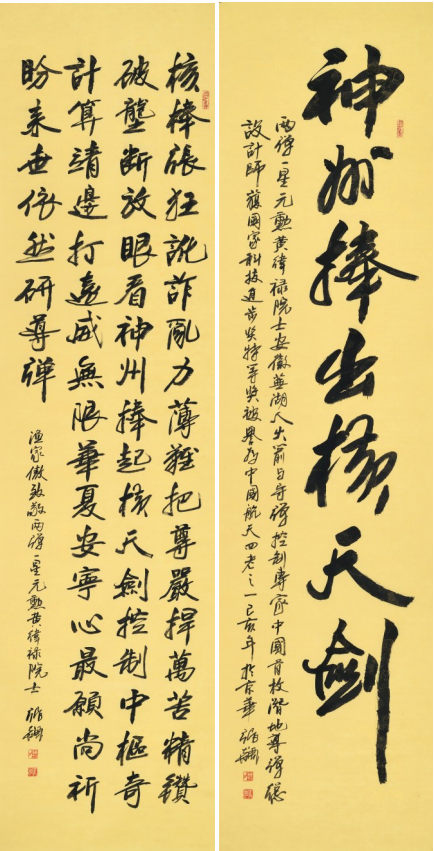 神州捧出核天劍
兩彈一星元勳黃緯祿院士安徽蕪湖人火箭與導彈控制專家中國首枚潛地導彈總
設計師獲國家科技進步獎特等獎被譽為中國航天四老之一己亥年於京華
核棒張狂訛詐亂力薄難把尊嚴捍萬苦精鑽
破壟斷放眼看神州捧起核天劍控制中樞奇
計算靖邊打遠威無限華夏安寧心最願尚祈
盼來世依然研導彈
漁家傲致敬兩彈一星元勳黃緯祿院士